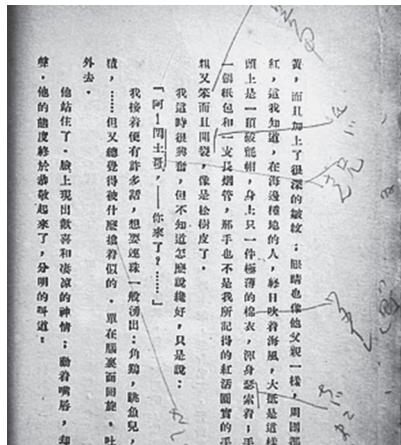 黃，而且加上了很深的皺紋；眼睛也像他父親一樣，周圍都
紅，這我知道，在海邊種地的人，終日吹着海風，大抵是這樣
頭上是一頂破氈帽，身上只一件極薄的棉衣，渾身瑟索着；手
一個紙包和一支長烟管，那手也不是我所記得的紅活圓實的手
粗又笨而且開裂，像是松樹皮了。
我這時很興奮，但不知道怎麼說纔好，只是說：
「阿！閏土哥，——你來了？……」
我接着便有許多話，想要連珠一般湧出：角鷄，跳魚兒，
猹，……但又總覺得被什麼擋着似的，單在腦裏面回旋，吐
外去。
他站住了，臉上現出歡喜和凄涼的神情；動着嘴唇，却
聲。他的態度終於恭敬起來了，分明的叫道：